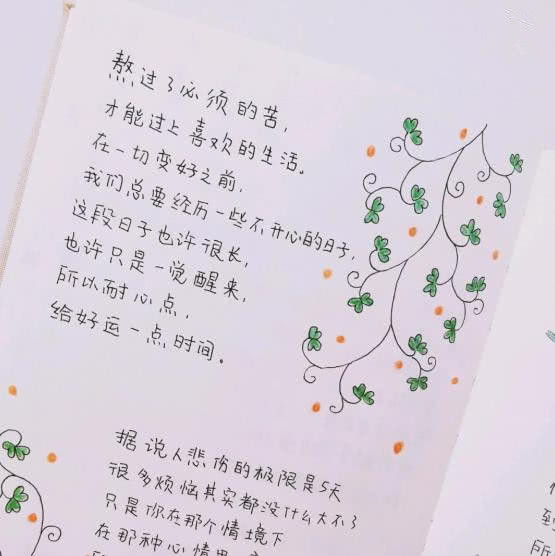 熬过了必须的苦，
才能过上喜欢的生活。
在一切变好之前，
我们总要经历一些不开心的日子，
这段日子也许很长，
也许只是一觉醒来，
所以耐心点，
给好运一点时间。
据说人悲伤的极限是5天
很多烦恼其实都没什么大不了
只是你在那个情境下
在那种心情里
到
所